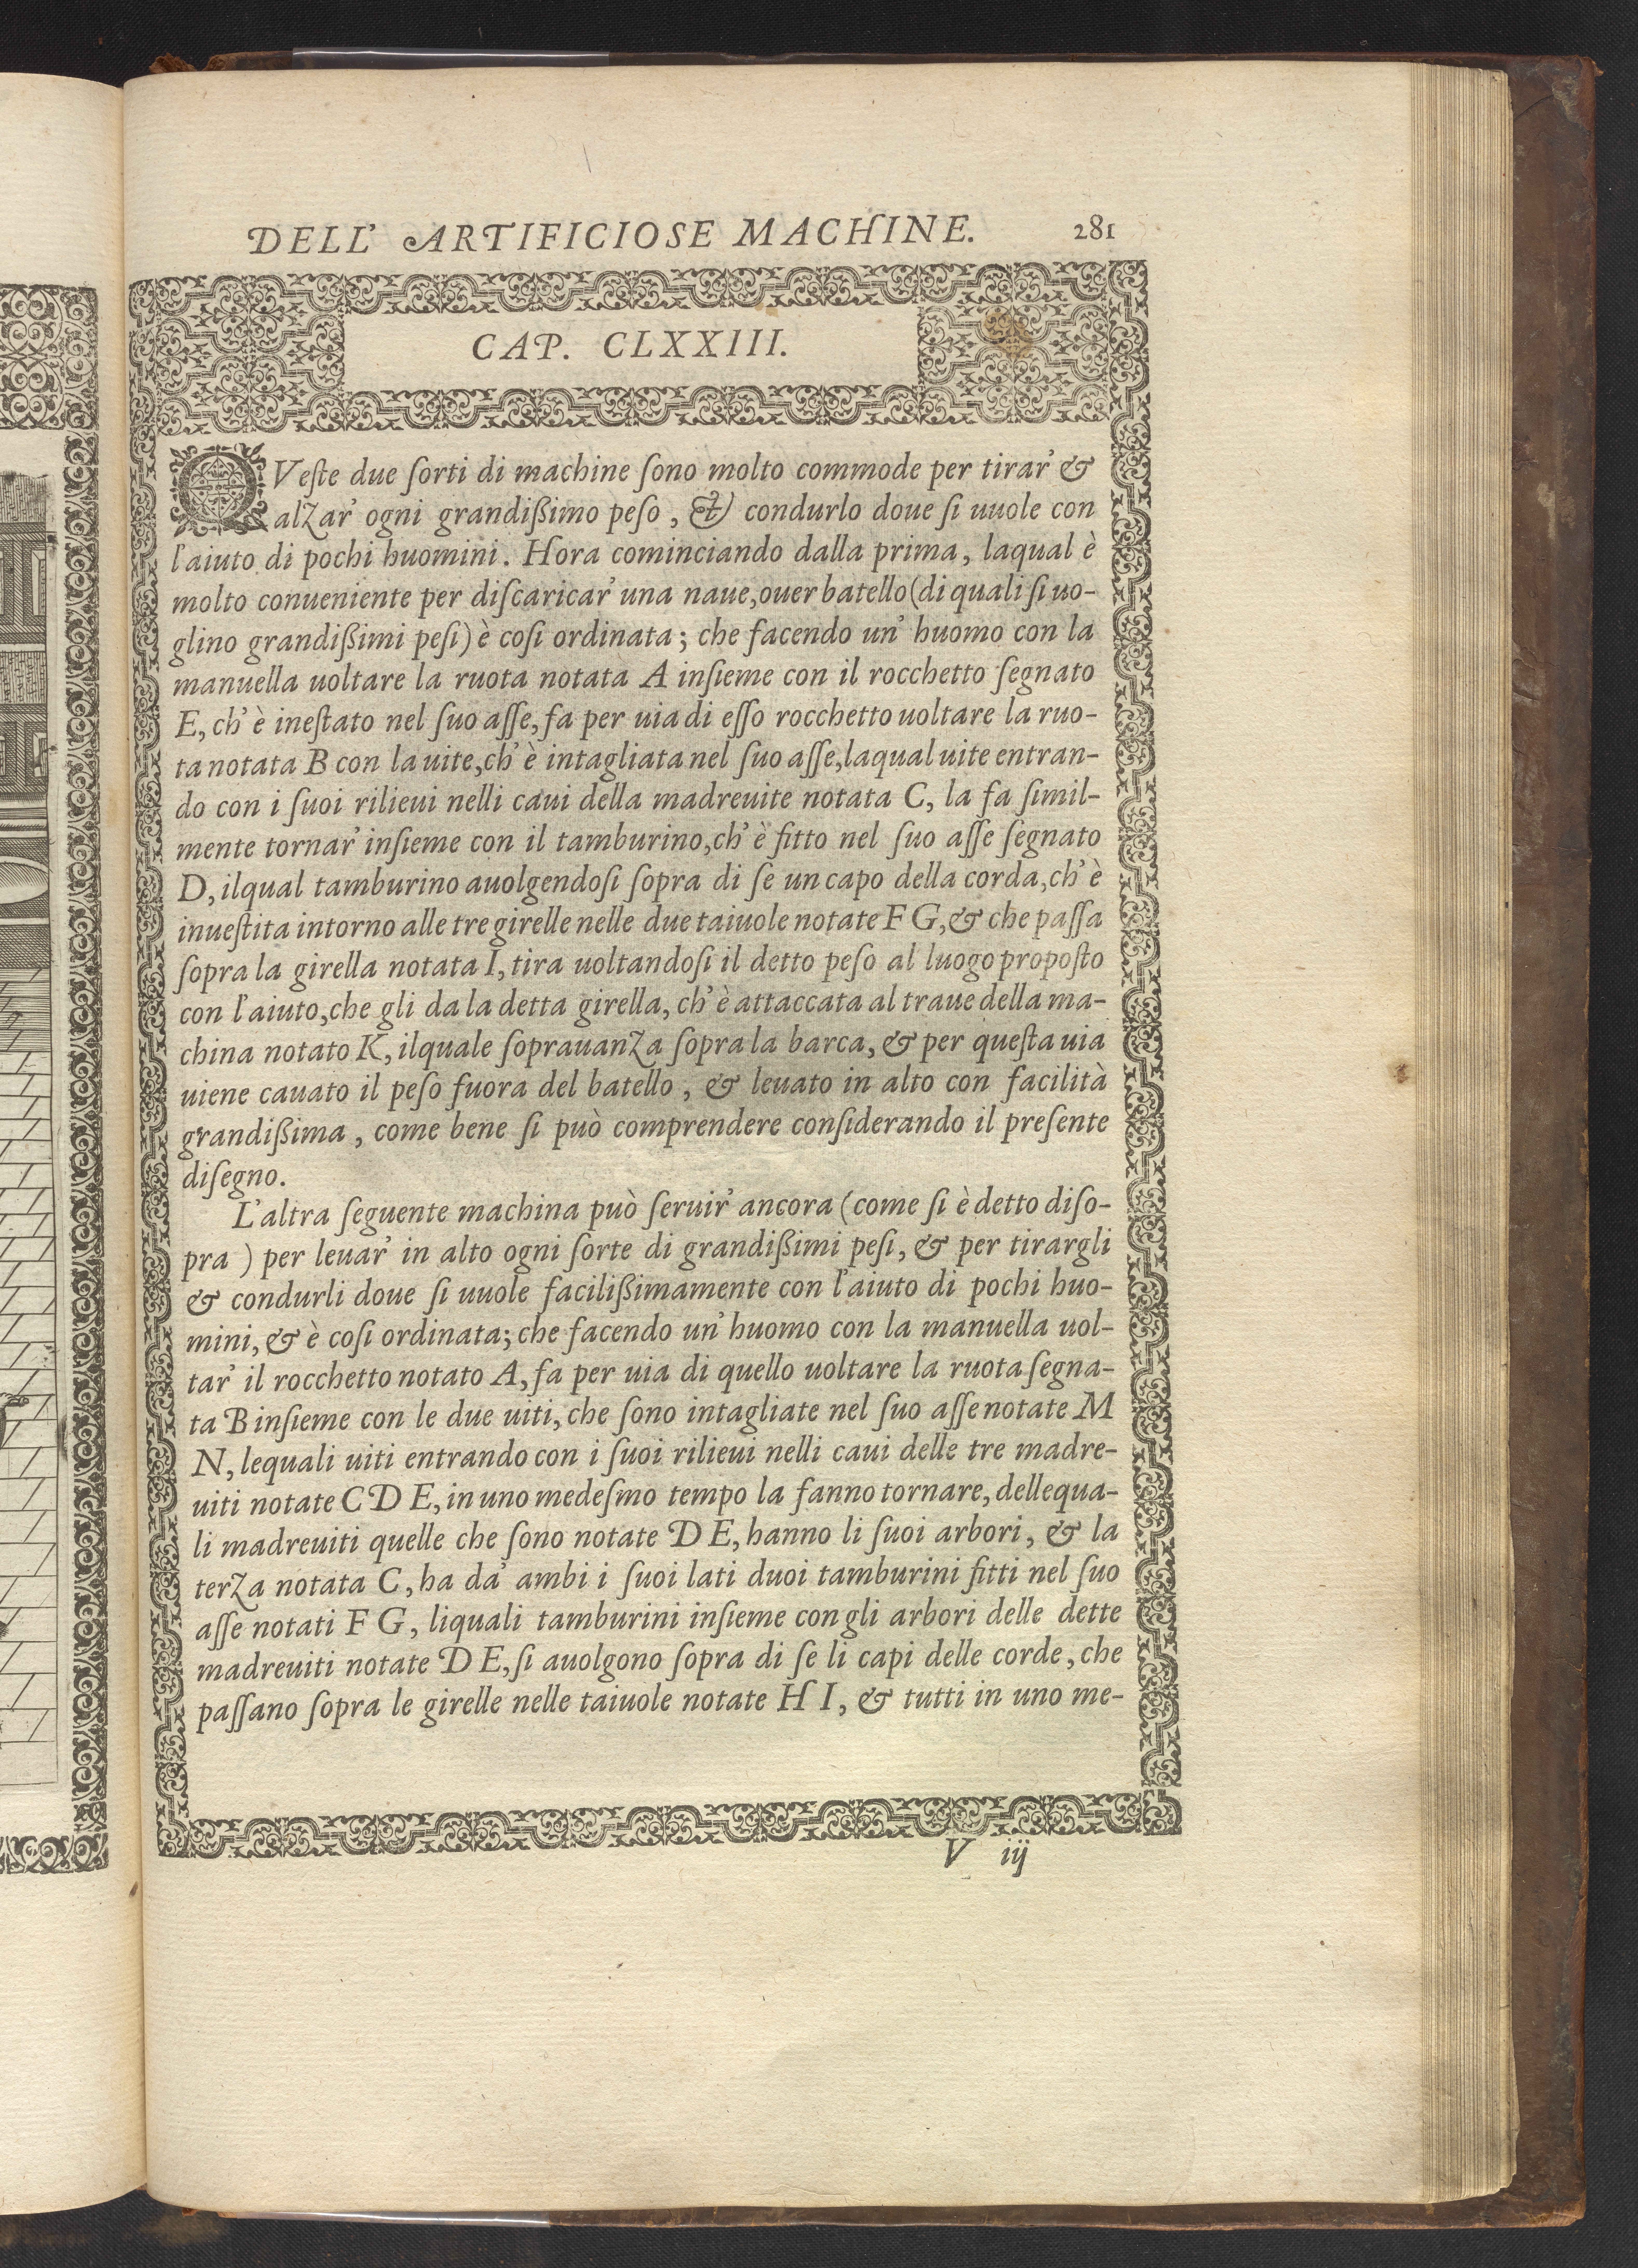 DELL' ARTIFICIOSE MACHINE. 281
CAP. CLXXIII.
QVeſte due ſorti di machine ſono molto commode per tirar' &
alzar' ogni grandißimo peſo, & condurlo doue ſi uuole con
l'aiuto di pochi huomini. Hora cominciando dalla prima, laqual è
molto conueniente per diſcaricar' una naue, ouer batello (di quali ſi uo-
glino grandißimi peſi) è coſi ordinata; che facendo un' huomo con la
manuella uoltare la ruota notata A inſieme con il rocchetto ſegnato
E, ch' è ineſtato nel ſuo aſſe, fa per uia di eſſo rocchetto uoltare la ruo-
ta notata B con la uite, ch' è intagliata nel ſuo aſſe, laqual uite entran-
do con i ſuoi rilieui nelli caui della madreuite notata C, la fa ſimil-
mente tornar' inſieme con il tamburino, ch' è fitto nel ſuo aſſe ſegnato
D, ilqual tamburino auolgendoſi ſopra di ſe un capo della corda, ch' è
inueſtita intorno alle tre girelle nelle due taiuole notate F G, & che paſſa
ſopra la girella notata I, tira uoltandoſi il detto peſo al luogo propoſto
con l'aiuto, che gli da la detta girella, ch' è attaccata al traue della ma-
china notato K, ilquale ſoprauanza ſopra la barca, & per queſta uia
uiene cauato il peſo fuora del batello, & leuato in alto con facilità
grandißima, come bene ſi può comprendere conſiderando il preſente
diſegno.
L'altra ſeguente machina può ſeruir' ancora (come ſi è detto diſo-
pra ) per leuar' in alto ogni ſorte di grandißimi peſi, & per tirargli
& condurli doue ſi uuole facilißimamente con l'aiuto di pochi huo-
mini, & è coſi ordinata; che facendo un' huomo con la manuella uol-
tar' il rocchetto notato A, fa per uia di quello uoltare la ruota ſegna-
ta B inſieme con le due uiti, che ſono intagliate nel ſuo aſſe notate M
N, lequali uiti entrando con i ſuoi rilieui nelli caui delle tre madre-
uiti notate C D E, in uno medeſmo tempo la fanno tornare, dellequa-
li madreuiti quelle che ſono notate D E, hanno li ſuoi arbori, & la
terza notata C, ha da' ambi i ſuoi lati duoi tamburini fitti nel ſuo
aſſe notati F G, liquali tamburini inſieme con gli arbori delle dette
madreuiti notate D E, ſi auolgono ſopra di ſe li capi delle corde, che
paſſano ſopra le girelle nelle taiuole notate H I, & tutti in uno me-
V iij